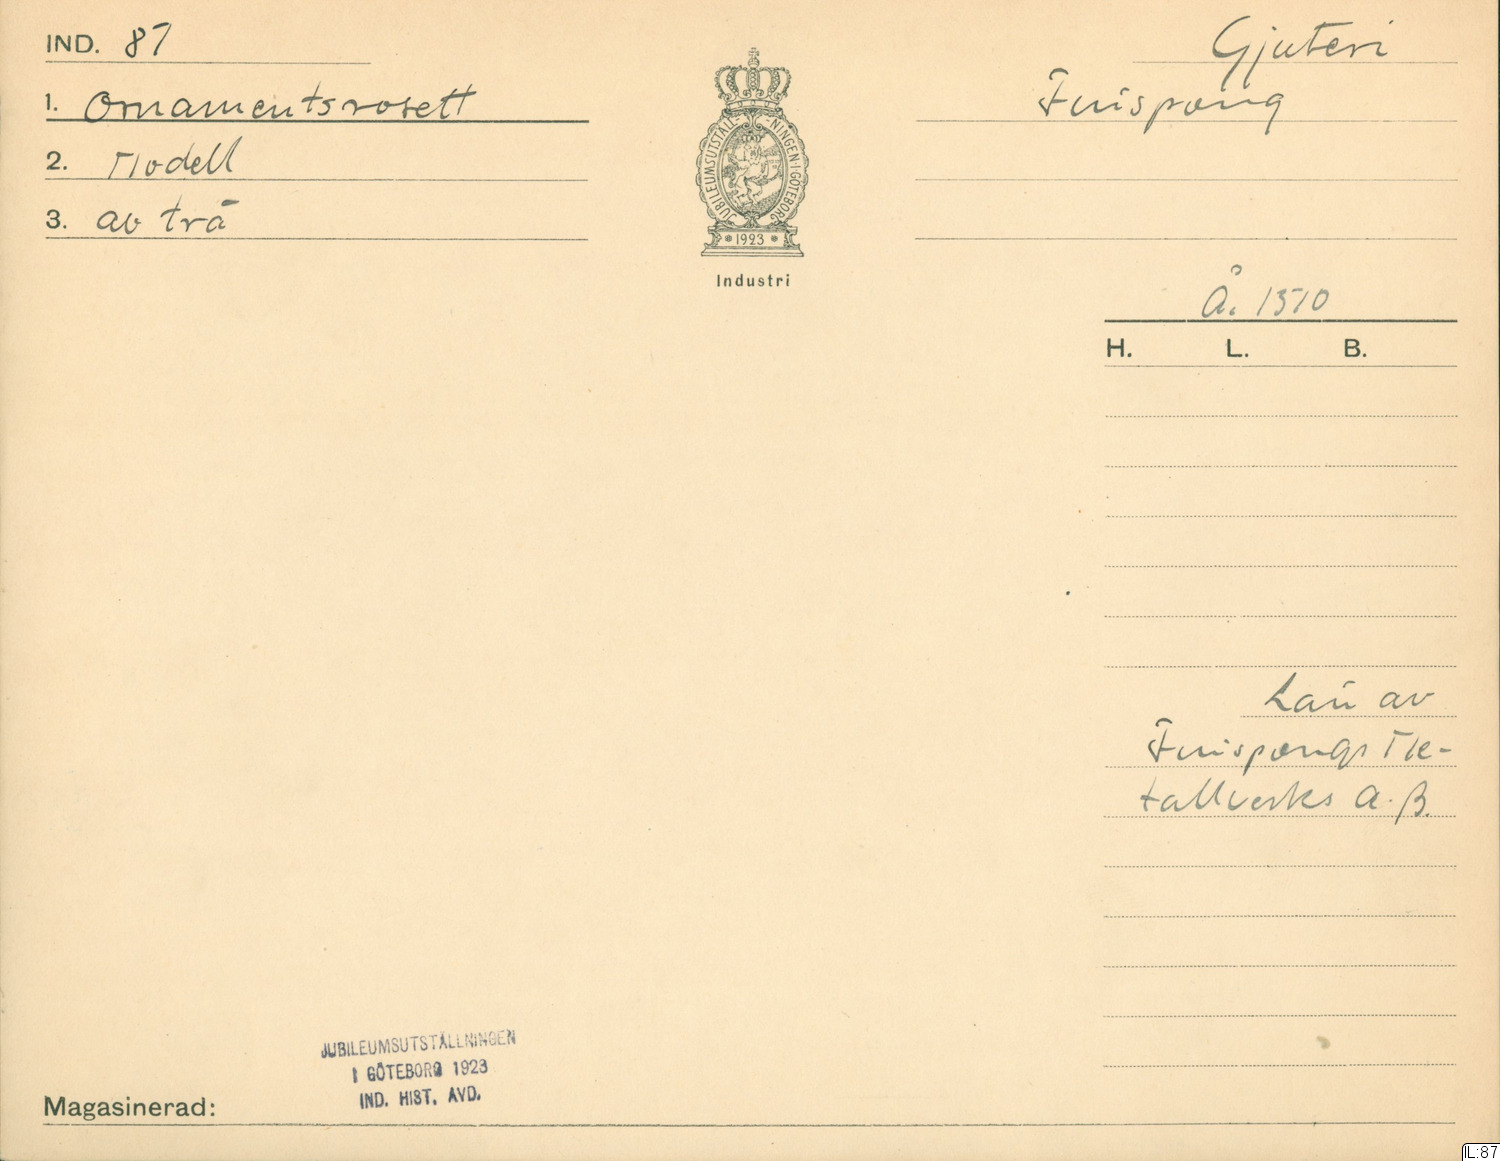 IND. 87
1. Ornamentsrosett
2. Modell
3. av trä
JUBILEUMSUTSTÄLLNINGEN I GÖTEBORG
1923
Industri
Gjuteri
Finspong
Å. 1510
H. L. B.
Lån av
Finspongs Me-
tallverks A.B.
JUBILEUMSUTSTÄLLNINGEN
I GÖTEBORG 1923
IND. HIST. AVD.
Magasinerad:
IL:87